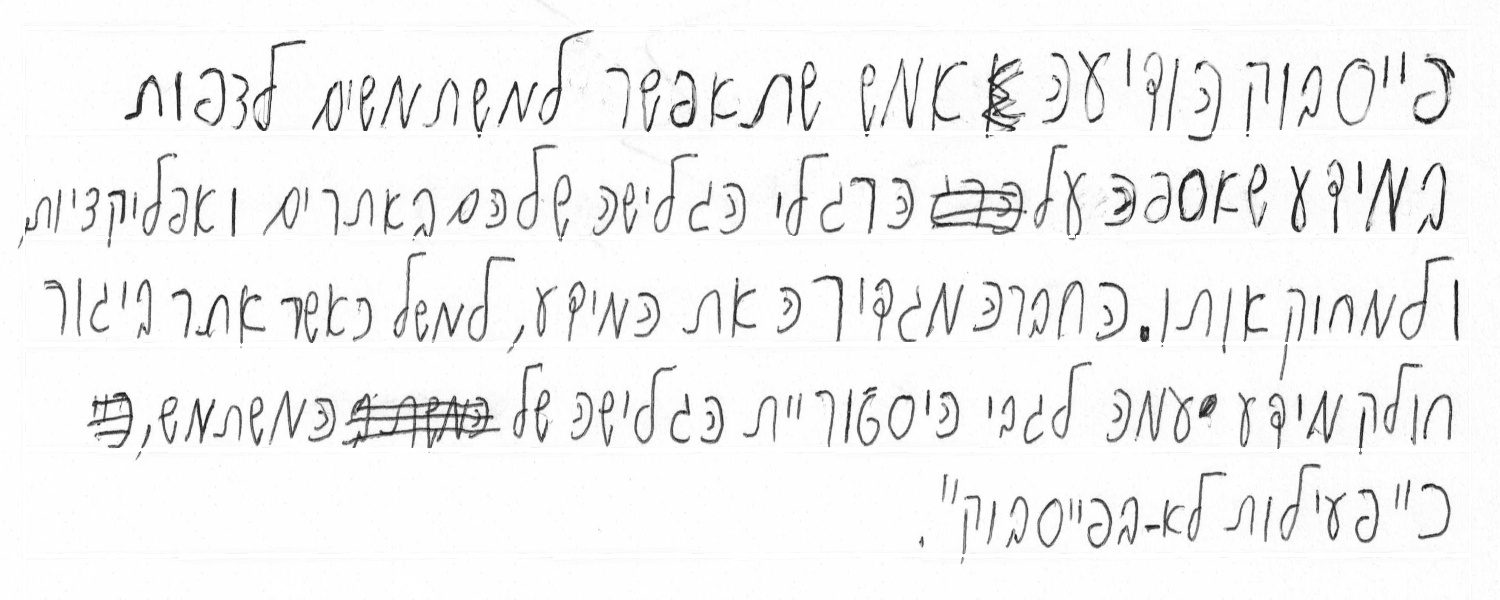 פייסבוק הודיעה אמש שתאפשר למשתמשים לצפות
במידע שאספה על הרגלי הגלישה שלהם באתרים ואפליקציות,
ולמחוק אותו. החברה מגדירה את המידע, למשל כאשר אתר ביגור
חולק מידע עמה לגבי היסטוריית הגלישה של המשתמש,
כ"פעילות לא-בפייסבוק".